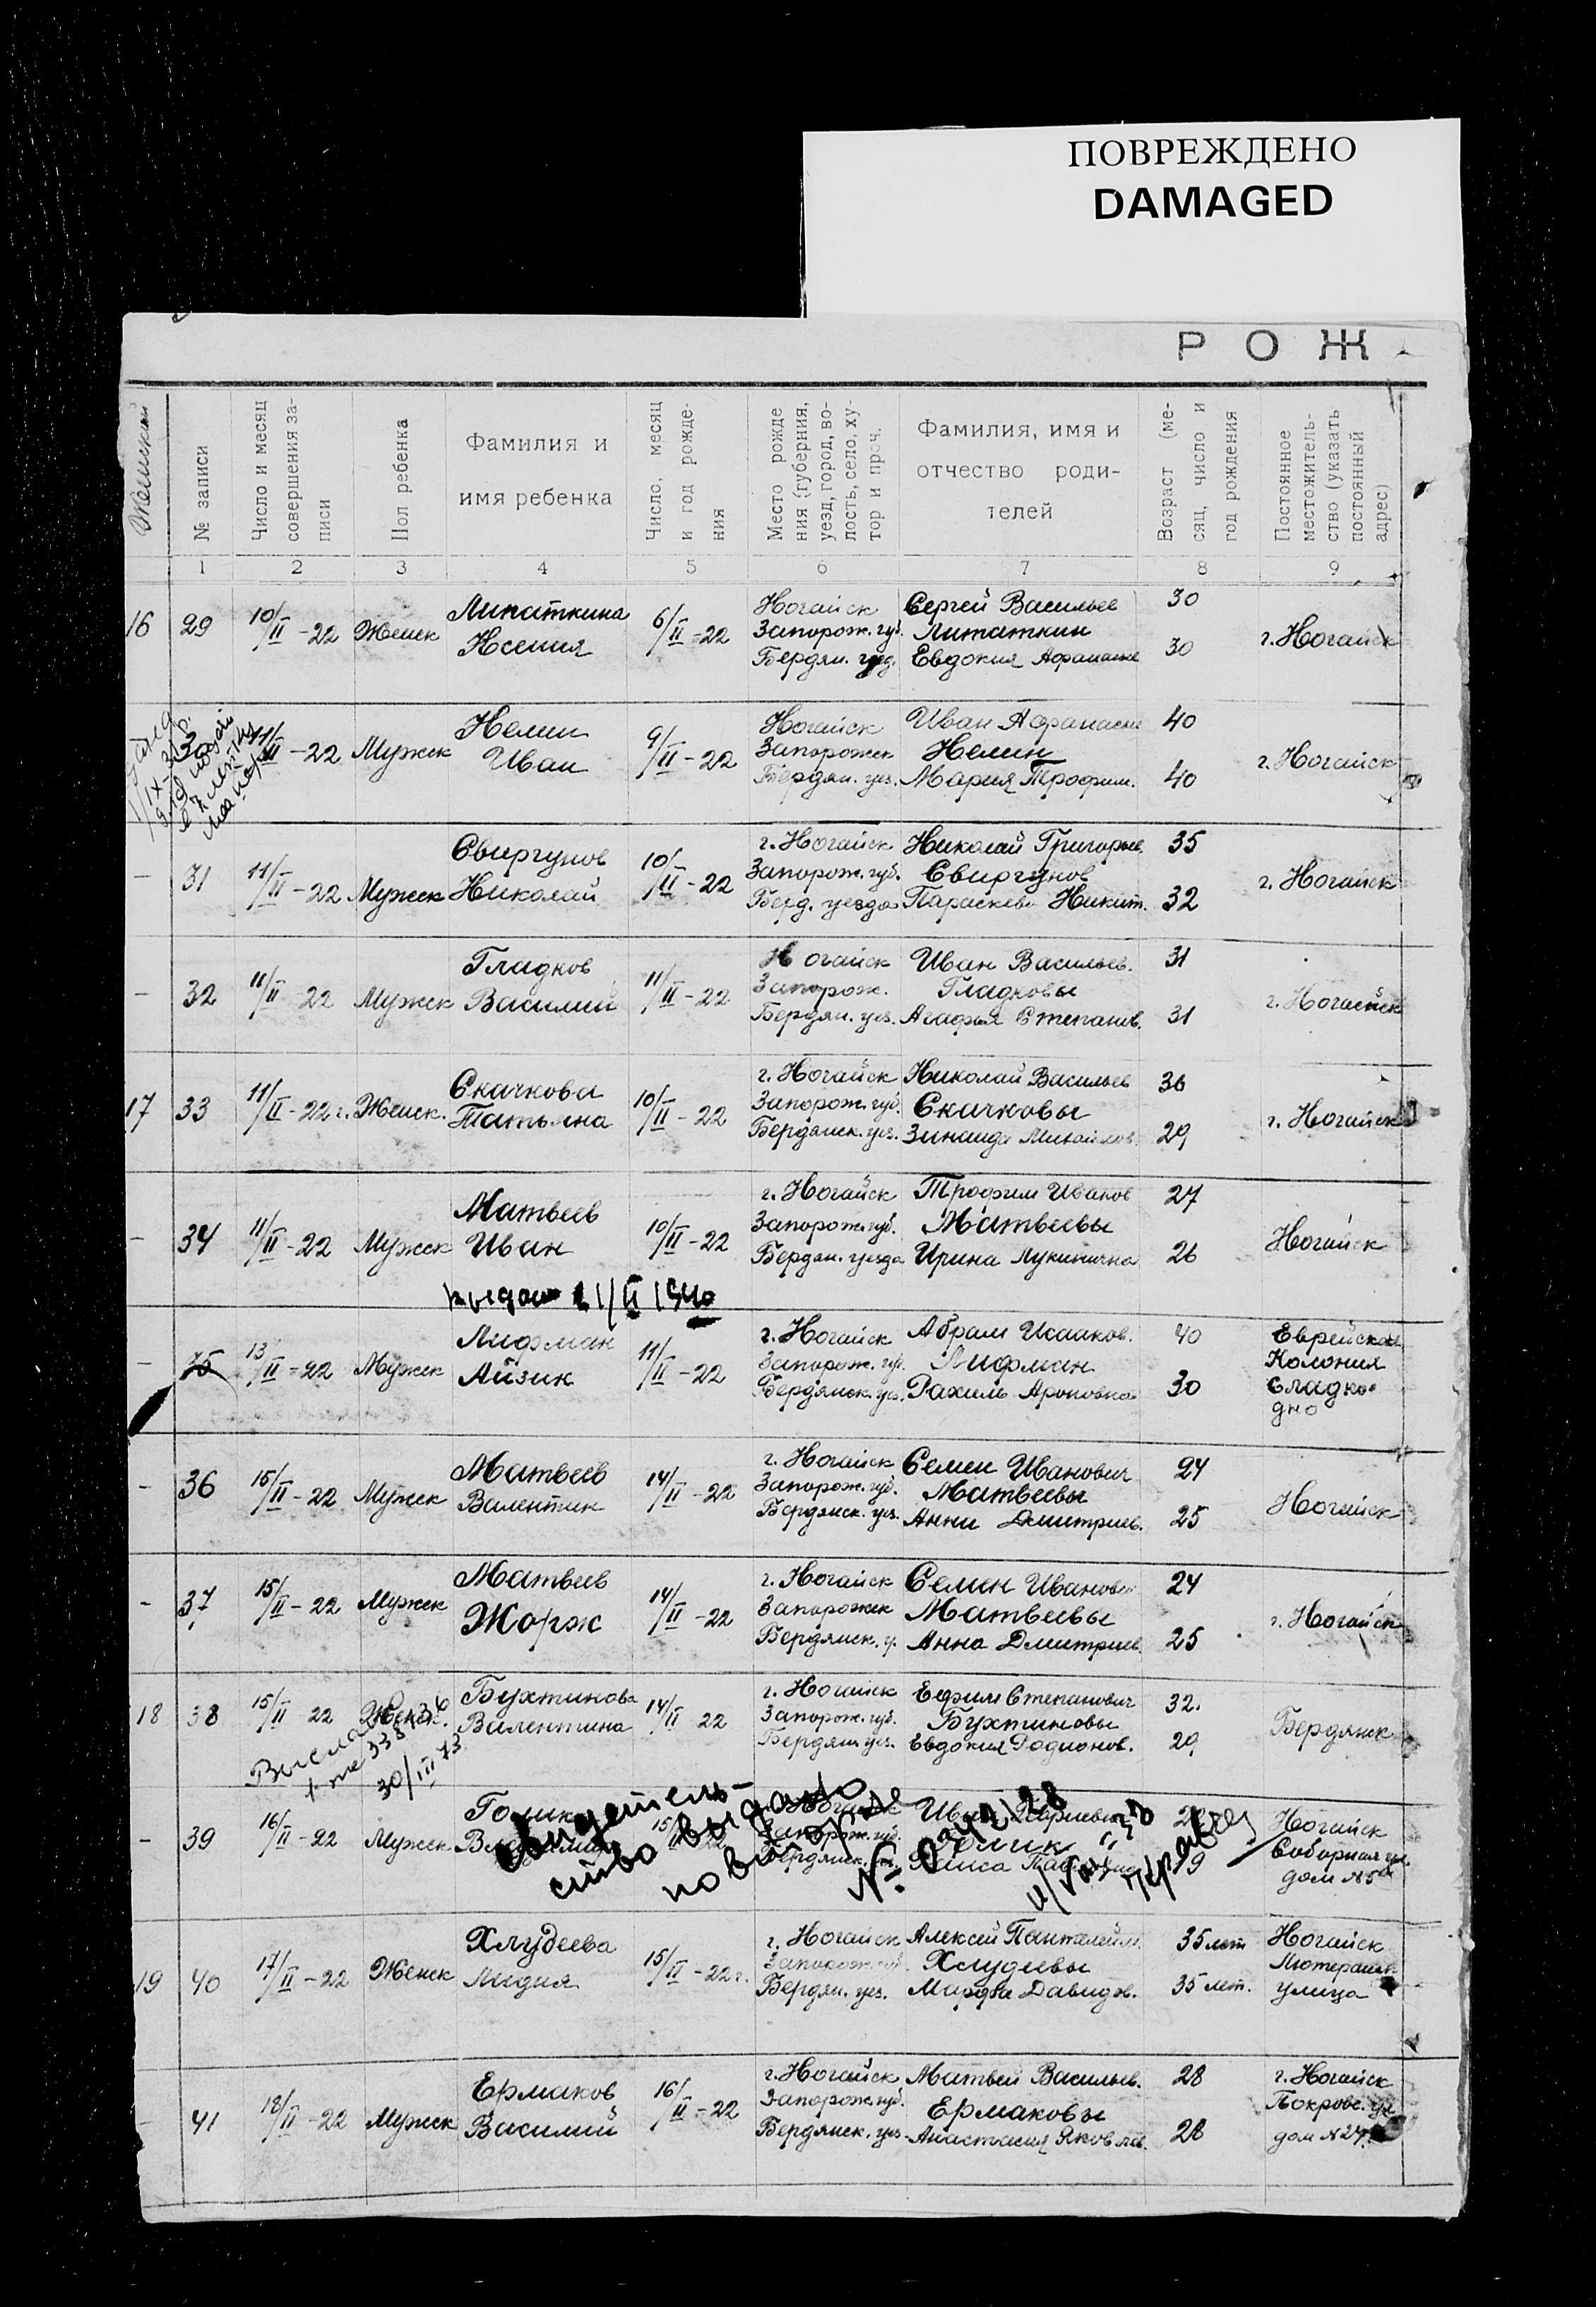 ПОВРЕЖДЕНО
DAMAGED
Р О Ж
Женский
№ записи
Число и месяц
совершения за-
писи
Пол ребенка
Фамилия и
имя ребенка
Число, месяц
и год рожде-
ния
Место рожде
ния (губерния,
уезд, город, во-
лость, село, ху-
тор и проч.
Фамилия, имя и
отчество роди-
телей
Возраст (ме-
сяц, число и
год рождения
Постоянное
местожитель-
ство (указать
постоянный
адрес)
1 2 3 4 5 6 7 8 9
16 29 10/II -22 Женск
Липаткина
Ксения
6/II -22
Ногайск
Запорож. губ.
Бердян. уезд.
Сергей Васильев
Липаткин
Евдокия Афанасье
30
30
г. Ногайск
30 11/II -22 Мужск
Нелин
Иван
9/II -22
Ногайск
Запорожск
Бердян. уез.
Иван Афанасье
Нелин
Мария Трофим.
40
40
г. Ногайск
- 31 11/II -22 Мужск
Свиргунов
Николай
10/II -22
г. Ногайск
Запорож. губ.
Берд. уезда
Николай Григорье.
Свиргунов
Параскева Никит.
35
32
г. Ногайск
- 32 11/II -22 Мужск
Гладков
Василий
11/II -22
Ногайск
Запорож.
Бердян. уез.
Иван Васильев.
Гладковы
Агафья Степанов.
31
31
г. Ногайск
17 33 11/II -22 г. Женск.
Скачкова
Татьяна
10/II -22
г. Ногайск
Запорож. губ.
Бердянск. уез.
Николай Васильев
Скачковы
Зинаида Михайлов.
36
29
г. Ногайск
- 34 11/II -22 Мужск
Матвеев
Иван
10/II -22
г. Ногайск
Запорож. губ.
Бердян. уезда
Трофим Иванов
Матвеевы
Ирина Лукинична
27
26
Ногайск
1/II 1940
- 35 13/II -22 Мужск
Лифман
Айзик
11/II -22
г. Ногайск
Запорож. губ.
Бердянск. уез.
Абрам Исааков.
Лифман
Рахиль Ароновна
40
30
Еврейская
Колония
Сладко-
дно
- 36 15/II -22 Мужск
Матвеев
Валентин
14/II -22
г. Ногайск
Запорож. губ.
Бердянск. уез.
Семен Иванович
Матвеевы
Анна Дмитриев.
24
25
Ногайск
- 37 15/II -22 Мужск
Матвеев
Жорж
14/II -22
г. Ногайск
Запорожск
Бердянск. у.
Семен Иванов
Матвеевы
Анна Дмитриев.
24
25
г. Ногайск
18 38 15/II 22 Женск.
Бухтинова
Валентина
14/II 22
г. Ногайск
Запорож. губ.
Бердян уез.
Ефим Степанович
Бухтиновы
Евдокия Родионов.
32.
29
Бердянск
30/III 73
- 39 16/II -22 Мужск
Владимир
15/II 22
Ногайск
Запорож. губ.
Бердянск.
Иван
Ногайск
Соборная ул.
дом №5а
Свидетель-
ство выдано
повторное
19 40 17/II -22 Женск
Хлудеева
Лидия
15/II -22 г.
г. Ногайск
Запорож. губ.
Бердян. уез.
Алексей Пантелейм.
Хлудеевы
Марфа Давидов.
35 лет
35 лет.
Ногайск
Лютеранск
улица
- 41 18/II -22 Мужск
Ермаков
Василий
16/II -22
г. Ногайск
Запорож. губ.
Бердянск. уез.
Матвей Васильев.
Ермаковы
Анастасия Яковлев.
28
28
г. Ногайск
Покровс. ул
дом №27